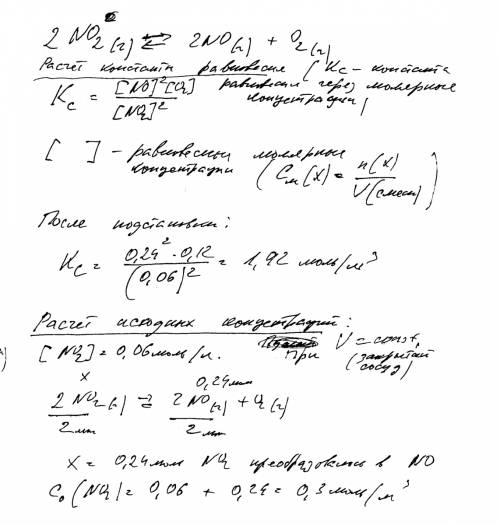 2 NO2(г) ⇄ 2NO(г) + O2(г)
Расчет константы равновесия (Kc – константа
Kc = [NO]²[O2] / [NO2]² равновесия через молярные
концентрации)
[ ] – равновесные молярные
концентрации (Cм(X) = n(X) / V(смеси))
После подстановки:
Kc = 0,24² · 0,12 / (0,06)² = 1,92 моль/м³
Расчет исходных концентраций:
[NO2] = 0,06 моль/л. при V = const,
(закрытый
сосуд)
x 0,24 моль
2 NO2(г) ⇄ 2 NO(г) + O2(г)
2 моль 2 моль
x = 0,24 моль NO2 преобразовалось в NO
C0(NO2) = 0,06 + 0,24 = 0,3 моль/м³